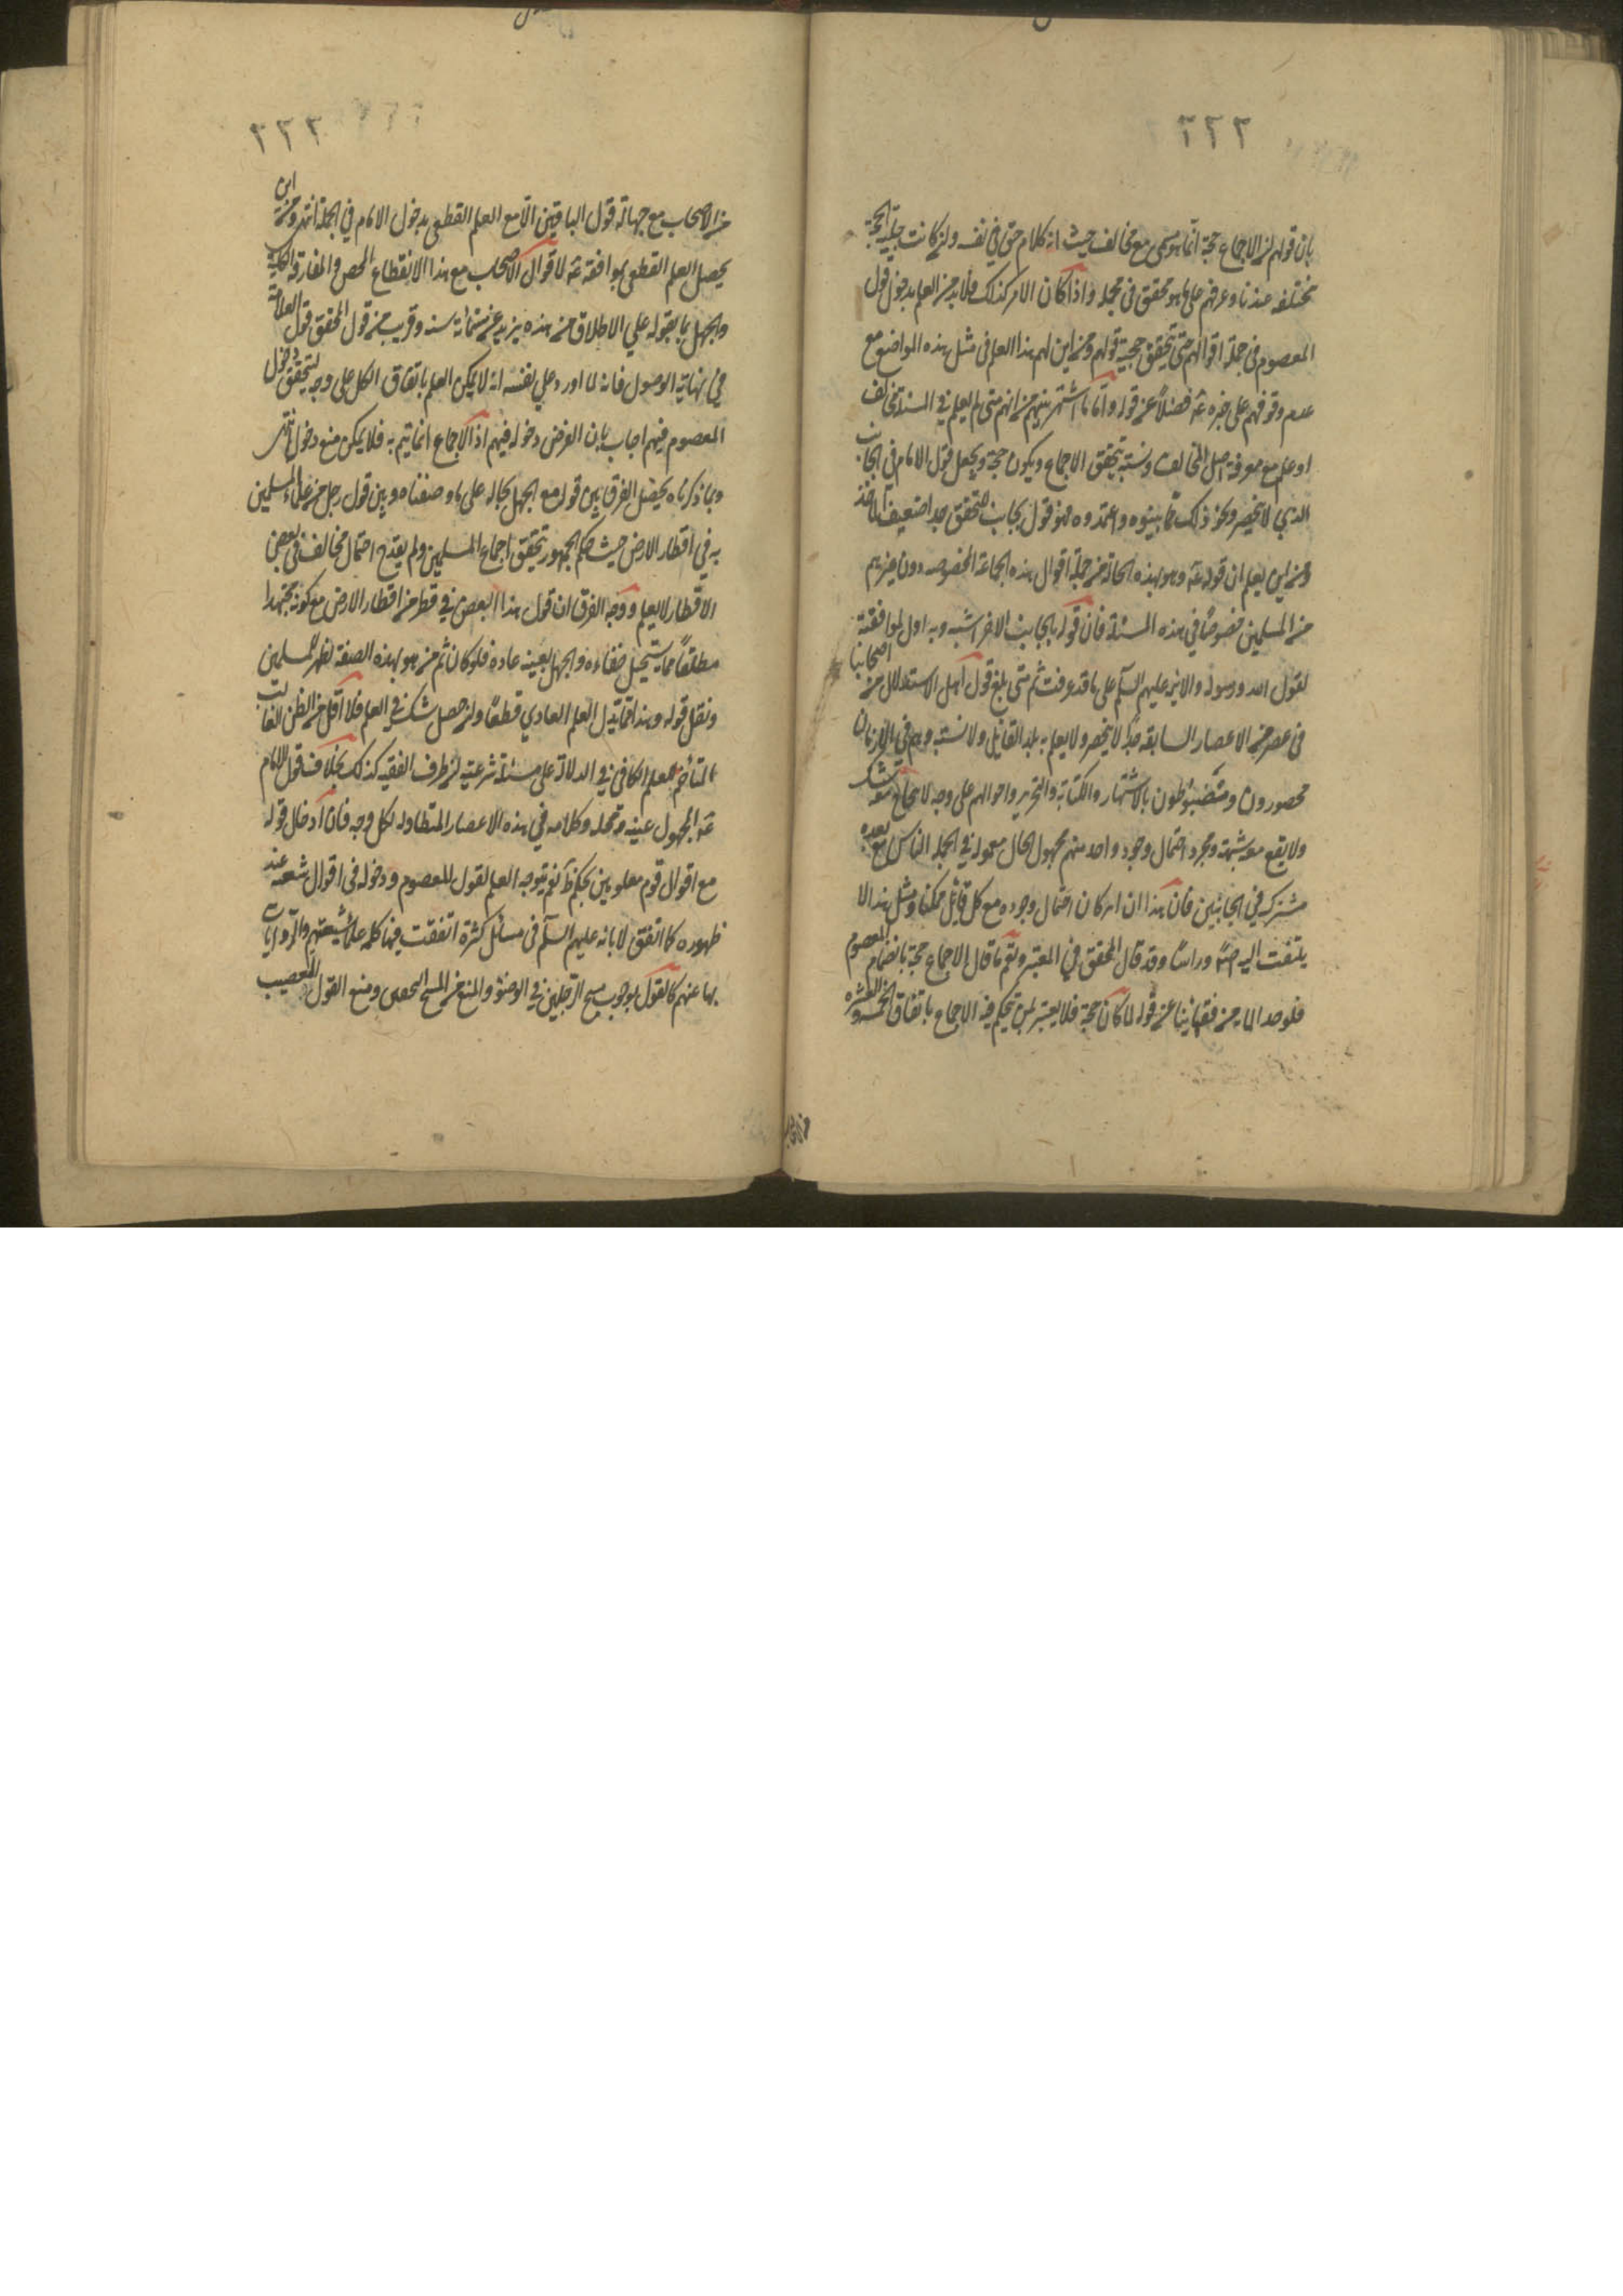 ٢٢٢
بان قولهم ان الاجماع حجة انما هو مع مخالف حيث انه كلام حق في نفسه وان كانت حيثية الحجة
مختلفة عندنا وعندهم على ما هو محقق في محله واذا كان الامر كذلك فلا بد من العلم بدخول قول
المعصوم في جملة اقوالهم حتى يتحقق حجية قولهم ومن اين لهم هذا العلم في مثل هذه المواضع مع
عدم وقوفهم على خبره ع فضلاً عن قوله واما ما اشتهر بينهم من انهم متى لم يعلم في المسئلة مخالف
او علم مع معرفة اصل المخالف ونسبه يتحقق الاجماع ويكون حجة ويجعل قول الامام في الجانب
الذي لا ينحصر ونحو ذلك مما بينوه واعتمدوه فهو قول بجانب للتحقيق جدا ضعيف الماخذ
ومن اين يعلم ان قوله ع وهو بهذه الحالة من جملة اقوال هذه الجماعة المخصوصه دون غيرهم
من المسلمين خصوصاً في هذه المسئلة فان قوله بالجانب الاخر اشبه وبه اولى لموافقته
لقول الله ورسوله والائمة عليهم السلم على ما قد عرفت ثم متى بلغ قول اهل الاستدلال من اصحابنا
في عصر من الاعصار السابقه حدًا لا ينحصر ولا يعلم به بلد القايل ولا نسبه وهم في الازمان
محصورون ومضبوطون بالاشتهار والكتابة والتحرير واحوالهم على وجه لا يتخالج معه شك
ولا يقع معه شبهة ومجرد احتمال وجود واحد منهم مجهول الحال معمور في الجملة الناس مع بعده
مشترك في الجانبين فان هذا ان كان احتمال وجوده مع كل قايل ممكنا ومثل هذا لا
يلتفت اليه اصلاً وراساً وقد قال المحقق في المعتبر ونعم ما قال الاجماع حجة بانضمام المعصوم
فلو خلا المايه من فقهائنا عن قوله لما كان حجة فلا يعتبر بمن يتحكم فيه الاجماع باتفاق الخمسة والعشرة
٢٢٣
من الاصحاب مع جهالة قول الباقين الا مع العلم القطعي بدخول الامام في الجملة انتهى ومن اين
يحصل العلم القطعي بموافقة ع لاقوال الاصحاب مع هذا الانقطاع المحض والمفارقة الكلية
والجهل بما يقوله على الاطلاق من هذه يزيد عن ستمائة سنه وقريب من قول المحقق قول العلامة
في نهاية الوصول فانه لما اورد على نفسه انه لا يمكن العلم باتفاق الكل على وجه يتحقق دخول
المعصوم فيهم اجاب بان الفرض دخوله فيهم اذ الاجماع انما يتم به فلا يمكن منع دخوله انتهى
وبما ذكرناه يحصل الفرق بين قوله مع الجهل بحاله على ما وصفناه وبين قول رجل من علماء المسلمين
به في اقطار الارض حيث حكم الجمهور بتحقق اجماع المسلمين ولم يقدح احتمال مخالف في بعض
الاقطار لا يعلم ووجه الفرق ان قول هذا البعض في قطر من اقطار الارض مع كونه مجتهدا
مطلقاً مما يستحيل خفاءه والجهل بعينه عادة فلو كان ثم من هو بهذه الصفة لظهر للمسلمين
ونقل قوله وهذا مما يبذل العلم العادي قطعاً وان حصل شك في العلم فلا اقل من الظن الغالب
المتاخم للعلم الكافي في الدلالة على مسئلة شرعية ان طرف الفقيه كذلك بخلاف قول الامام
ع المجهول عينه ومحله وكلامه في هذه الاعصار المتطاوله لكل وجه فان ادخال قوله
مع اقوال قوم معلومين تحكم ظ نعم يتوجه العلم لقول المعصوم ودخوله في اقوال شيعه عند
ظهوره كما اتفق لابائه عليهم السلم في مسائل كثيرة اتفقت فيها كلمة علماء شيعتهم والروايات
بها عنهم كالقول بوجوب مسح الرجلين في الوضوء والمنع من المسح الخفين ومنع القول بالتعصيب